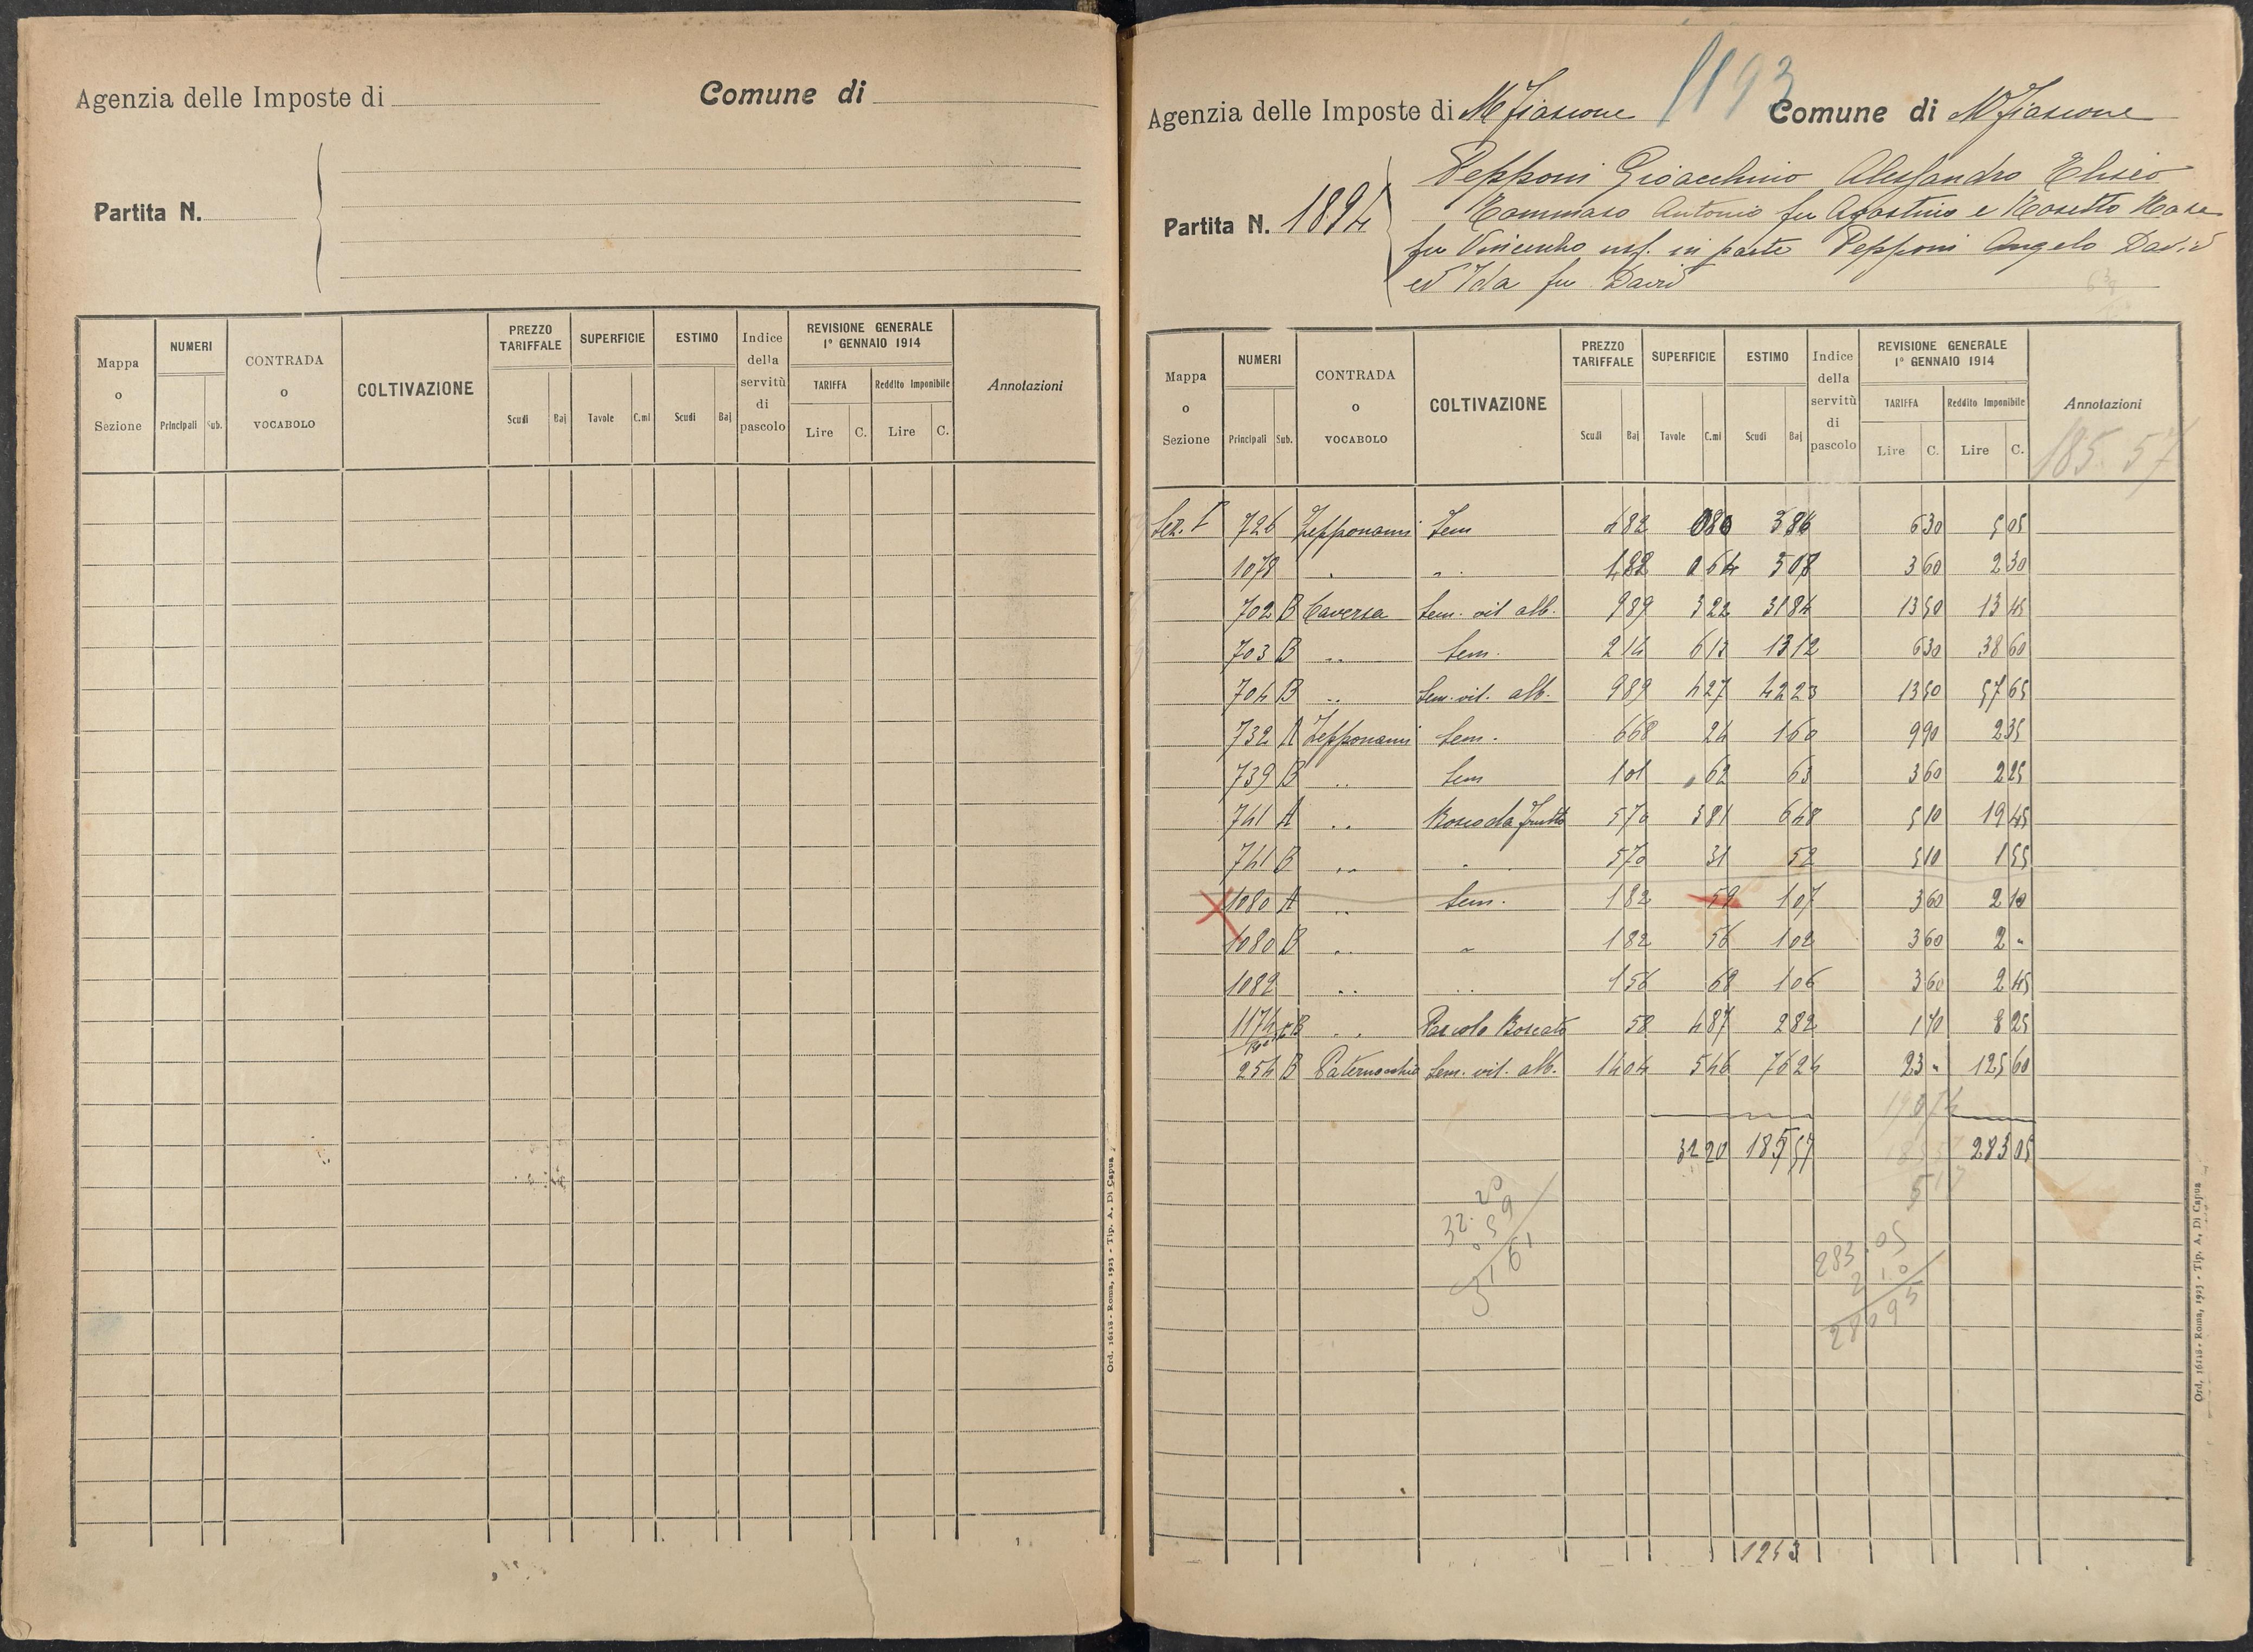 Agenzia delle Imposte di Comune di
Partita N.
Mappa o Sezione NUMERI Principali Sub. CONTRADA o VOCABOLO COLTIVAZIONE PREZZO TARIFFALE Scudi Baj SUPERFICIE Tavole C.mi ESTIMO Scudi Baj Indice della servitù di pascolo REVISIONE GENERALE 1º GENNAIO 1914 TARIFFA Lire C. Reddito Imponibile Lire C. Annotazioni
Ord. 16118 - Roma, 1923 - Tip. A. Di Capua
1193
Agenzia delle Imposte di M Fiascone Comune di M Fiascone
Partita N. 1894
Pepponi Gioacchino Alessandro Eliseo
Tommaso Antonio fu Agostino e Rosetto Rosa
fu Vincenzo usf. in parte Pepponi Angelo David
ed Ida fu David
Mappa o Sezione NUMERI Principali Sub. CONTRADA o VOCABOLO COLTIVAZIONE PREZZO TARIFFALE Scudi Baj SUPERFICIE Tavole C.mi ESTIMO Scudi Baj Indice della servitù di pascolo REVISIONE GENERALE 1º GENNAIO 1914 TARIFFA Lire C. Reddito Imponibile Lire C. Annotazioni
185.57
Sez. I 726 Zepponami Sem 482 080 386 6 30 5 05
1078 " " 482 0 64 308 3 60 2 30
702 B Caversa Sem. vit alb. 9 89 3 22 31 84 13 50 13 45
703 B " Sem. 2 14 6 13 13 12 6 30 38 60
704 B " Sem. vit. alb. 9 89 4 27 42 23 13 50 57 65
732 A Zepponami Sem. 6 68 24 1 60 9 90 2 35
739 B " Sem 1 01 62 63 3 60 2 25
741 A " Bosco da frutto 5 70 3 81 6 48 5 10 19 45
741 B " " 5 70 31 52 5 10 1 55
1080 A " Sem. 1 82 59 1 07 3 60 2 10
1080 B " " 1 82 56 1 02 3 60 2 "
1082 " " 1 56 68 1 06 3 60 2 45
1174 B " Pascolo Boscato 58 4 87 2 82 1 70 8 25
254 B Paternocchio Sem. vit. alb. 14 04 5 46 76 24 23 " 125 60
32 20 185 57 283 05
32.20
.59
31 61
283.05
2 10
280 95
1253
Ord. 16118 - Roma, 1923 - Tip. A. Di Capua